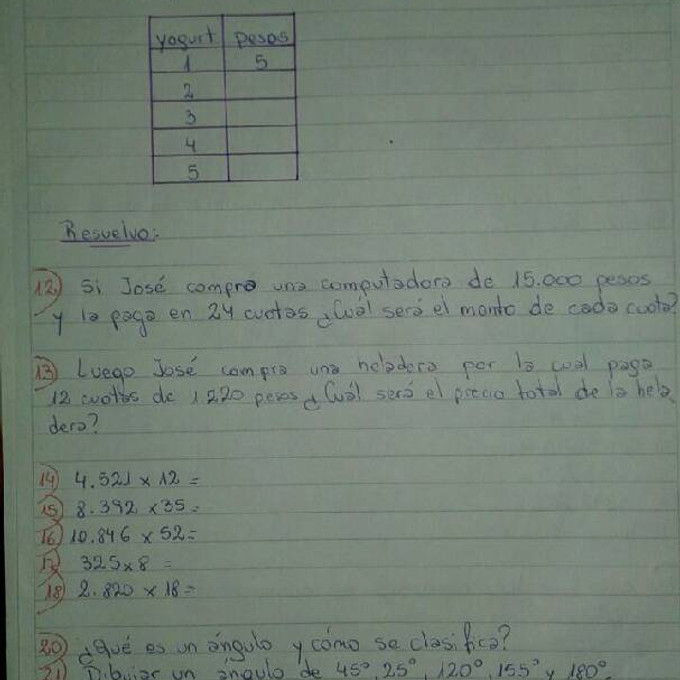 yogurt pesos
1 5
2
3
4
5
Resuelvo:
12) Si José compra una computadora de 15.000 pesos
y la paga en 24 cuotas ¿Cuál será el monto de cada cuota?
13) Luego José compra una heladera por la cual paga
12 cuotas de 1220 pesos ¿Cuál será el precio total de la hela
dera?
14) 4.521 x 12 =
15) 8.392 x 35 =
16) 10.846 x 52 =
17) 325 x 8 =
18) 2.820 x 18 =
20) ¿Qué es un ángulo y cómo se clasifica?
21) Dibujar un ángulo de 45°, 25°, 120°, 155° y 180°.